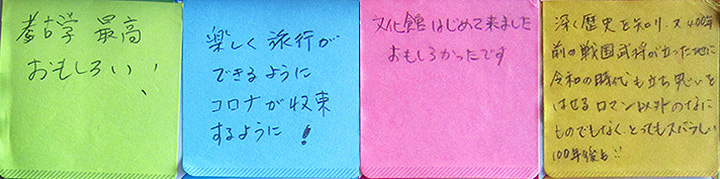 考古学 最高
おもしろい!!
楽しく旅行が
できるように
コロナが収束
するように!
文化館はじめて来ました
おもしろかったです
深く歴史を知り、又400年
前の戦国武将が立った地に
令和の時代も立ち思いを
はせるロマン以外のなに
ものでもなく、とってもスバラしい
100年後も!!